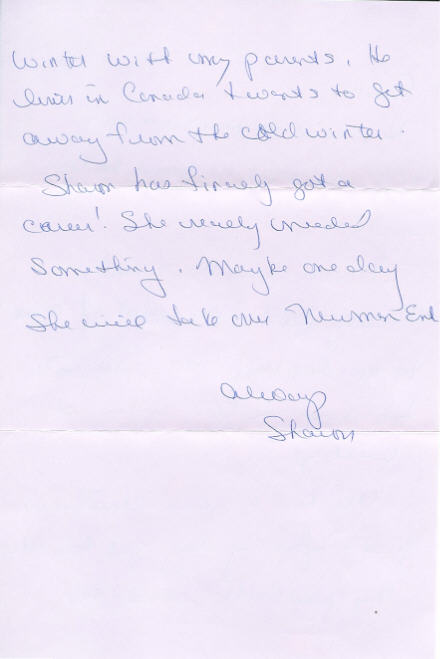 winter with my parents. He
lives in Canada & wants to get
away from the cold winter.
Sharon has finely got a
career! She really needed
something. Maybe one day
she will take over Newman Ent
Always
Sharon